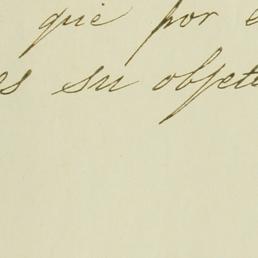 que por e
es su objeto